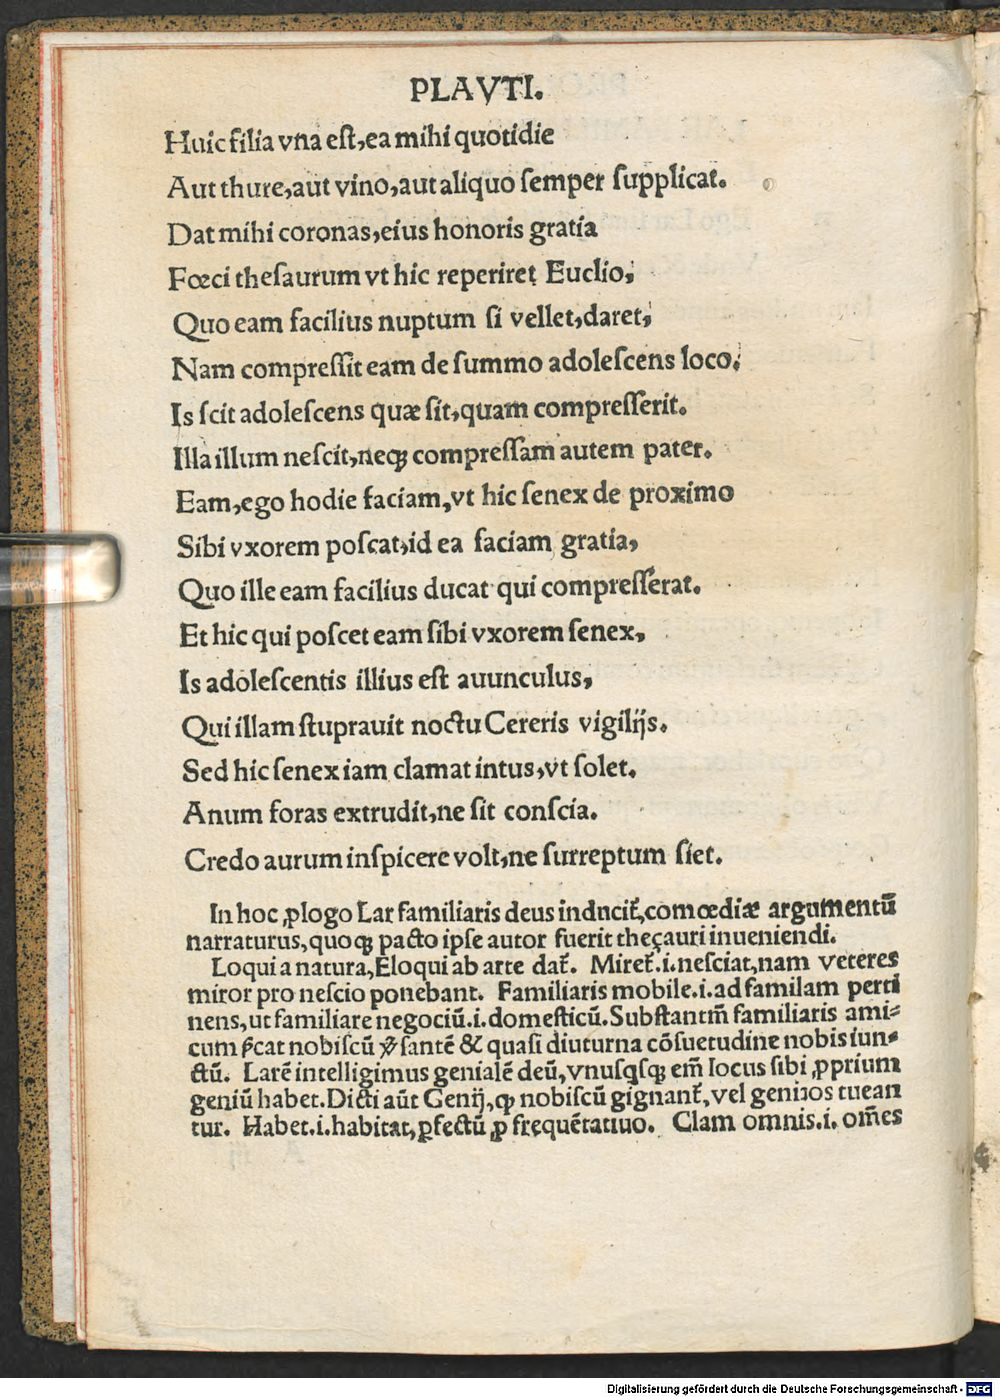 PLAVTI.
Huic filia vna eſt,ea mihi quotidie
Aut thure,aut vino,aut aliquo ſemper ſupplicat.
Dat mihi coronas,eius honoris gratia
Fœci theſaurum vt hic reperiret Euclio,
Quo eam facilius nuptum ſi vellet,daret,
Nam compreſſit eam de ſummo adoleſcens loco.
Is ſcit adoleſcens quæ ſit,quam compreſſerit.
Illa illum neſcit,neqꝫ compreſſam autem pater.
Eam,ego hodie faciam,vt hic ſenex de proximo
Sibi vxorem poſcat,id ea faciam gratia,
Quo ille eam facilius ducat qui compreſſerat.
Et hic qui poſcet eam ſibi vxorem ſenex,
Is adoleſcentis illius eſt auunculus,
Qui illam ſtuprauit noctu Cereris vigilijs.
Sed hic ſenex iam clamat intus,vt ſolet.
Anum foras extrudit,ne ſit conſcia.
Credo aurum inſpicere volt,ne ſurreptum ſiet.
In hoc ꝓlogo Lar familiaris deus indncit̃,comœdiæ argumentũ
narraturus,quoqꝫ pacto ipſe autor fuerit theçauri inueniendi.
Loqui a natura,Eloqui ab arte dat̃. Miret̃.i.neſciat,nam veteres
miror pro neſcio ponebant. Familiaris mobile.i.ad familam perti
nens,ut familiare negociũ.i.domeſticũ.Subſtantiũ familiaris ami⸗
cum ſp̃cat nobiſcũ ꝟſantẽ & quaſi diuturna cõſuetudine nobis iun⸗
ctũ. Larẽ intelligimus genialẽ deũ,vnuſqſqꝫ em̃ locus ſibi ꝓprium
geniũ habet.Dicti aũt Genij,ꝙ nobiſcũ gignant̃,vel genitos tuean
tur. Habet.i.habitat,ꝑfectũ ꝓ frequẽtatiuo. Clam omnis.i. om̃es
Digitalisierung gefördert durch die Deutsche Forschungsgemeinschaft - DFG